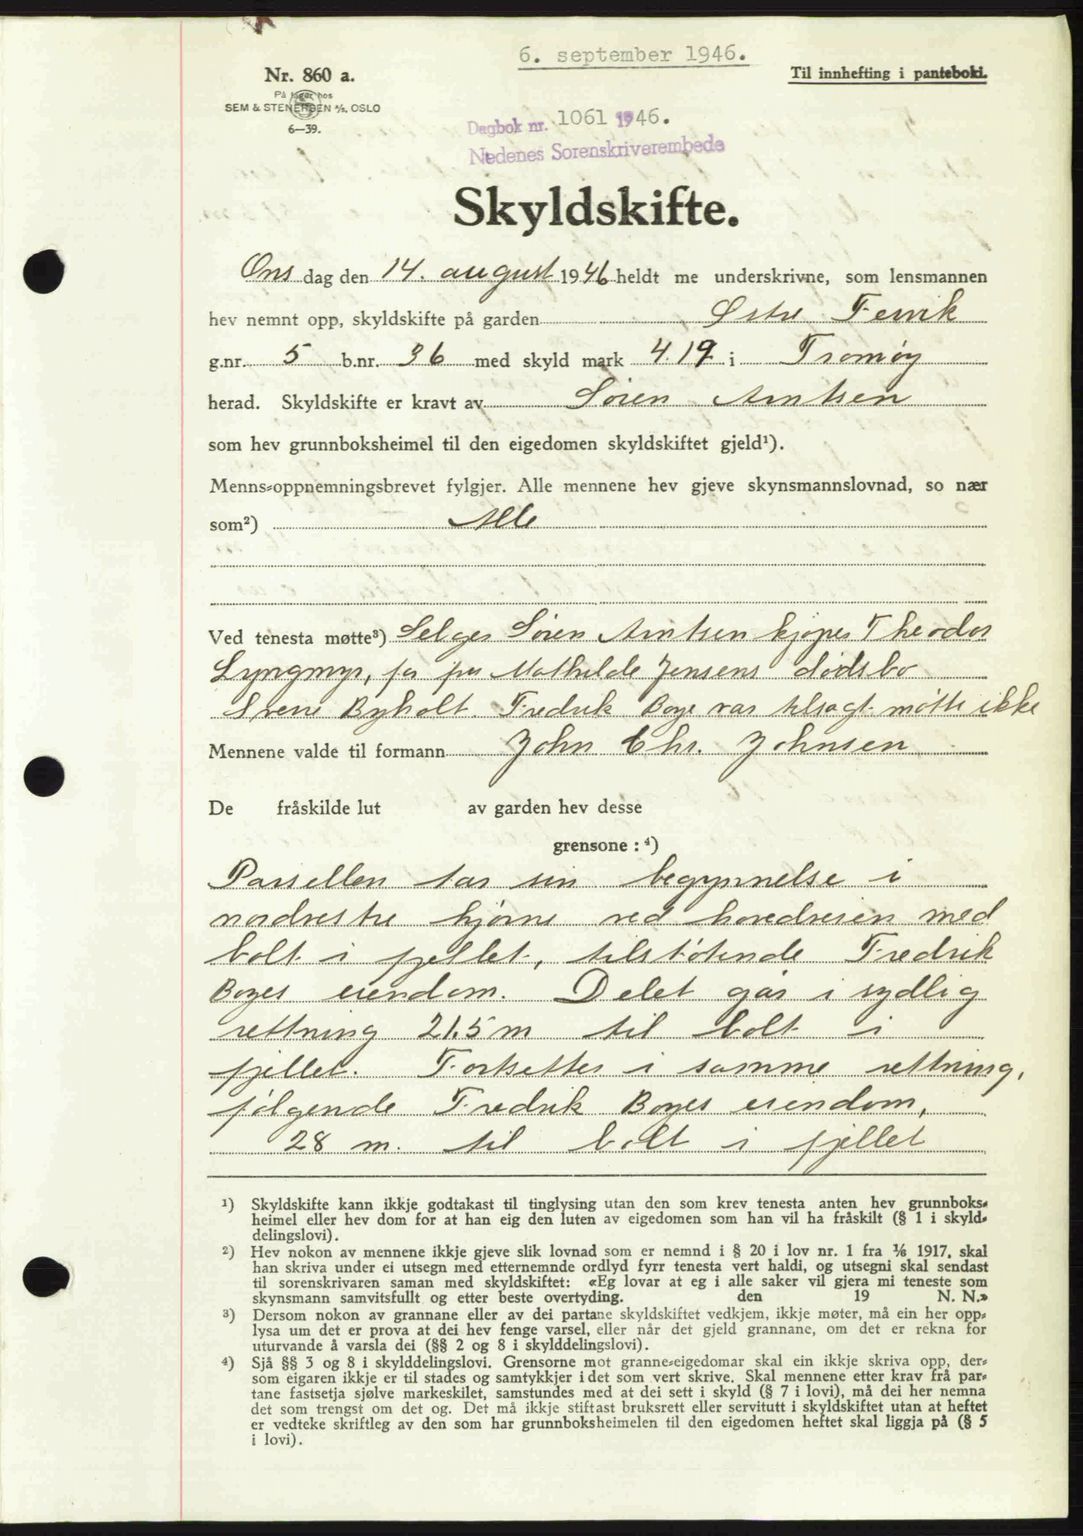 6. september 1946.
Nr. 860 a.
Til innhefting i panteboki.
På lager hos
SEM & STENERSEN A/S, OSLO
6—39.
Dagbok nr. 1061 1946.
Nedenes Sorenskriverembede
Skyldskifte.
Ons dag den 14. august 1946 heldt me underskrivne, som lensmannen
hev nemnt opp, skyldskifte på garden Østre Fervik
g.nr. 5 b.nr. 36 med skyld mark 4.19 i Tromøy
herad. Skyldskifte er kravt av Søren Arntsen
som hev grunnboksheimel til den eigedomen skyldskiftet gjeld¹).
Menns-oppnemningsbrevet fylgjer. Alle mennene hev gjeve skynsmannslovnad, so nær
som²) Alle
Ved tenesta møtte³) Selger Søren Arntsen kjøper Theodor
Lyngmyr, for fru Mathilde Jensens dødsbo
Byholt. Fredrik Boye var tilsagt møtte ikke
Mennene valde til formann John Chr. Johnsen
De fråskilde lut av garden hev desse
grensone : ⁴)
Parsellen tar sin begynnelse i
nordvestre hjørne ved hovedveien med
bolt i fjellet, tilstøtende Fredrik
Boyes eiendom. Delet går i sydlig
rettning 21.5 m til bolt i
fjellet. Fortsetter i samme rettning,
følgende Fredrik Boyes eiendom,
28 m. til bolt i fjellet
¹) Skyldskifte kann ikkje godtakast til tinglysing utan den som krev tenesta anten hev grunnboks-
heimel eller hev dom for at han eig den luten av eigedomen som han vil ha fråskilt (§ 1 i skyld-
delingslovi).
²) Hev nokon av mennene ikkje gjeve slik lovnad som er nemnd i § 20 i lov nr. 1 fra 1/6 1917, skal
han skriva under ei utsegn med etternemnde ordlyd fyrr tenesta vert haldi, og utsegni skal sendast
til sorenskrivaren saman med skyldskiftet: «Eg lovar at eg i alle saker vil gjera mi teneste som
skynsmann samvitsfullt og etter beste overtyding. den 19 N. N.»
³) Dersom nokon av grannane eller av dei partane skyldskiftet vedkjem, ikkje møter, må ein her opp-
lysa um det er prova at dei hev fenge varsel, eller når det gjeld grannane, om det er rekna for
uturvande å varsla dei (§§ 2 og 8 i skylddelingslovi).
⁴) Sjå §§ 3 og 8 i skylddelingslovi. Grensorne mot granne-eigedomar skal ein ikkje skriva opp, der-
som eigaren ikkje er til stades og samtykkjer i det som vert skrive. Skal mennene etter krav frå par-
tane fastsetja sjølve markeskilet, samstundes med at dei sett i skyld (§ 7 i lovi), må dei her nemna
det som trengst om det og. Det må ikkje stiftast bruksrett eller servitutt i skyldskiftet utan at heftet
er vedteke skriftleg av den som har grunnboksheimelen til den eigedomen heftet skal liggja på (§ 5
i lovi).